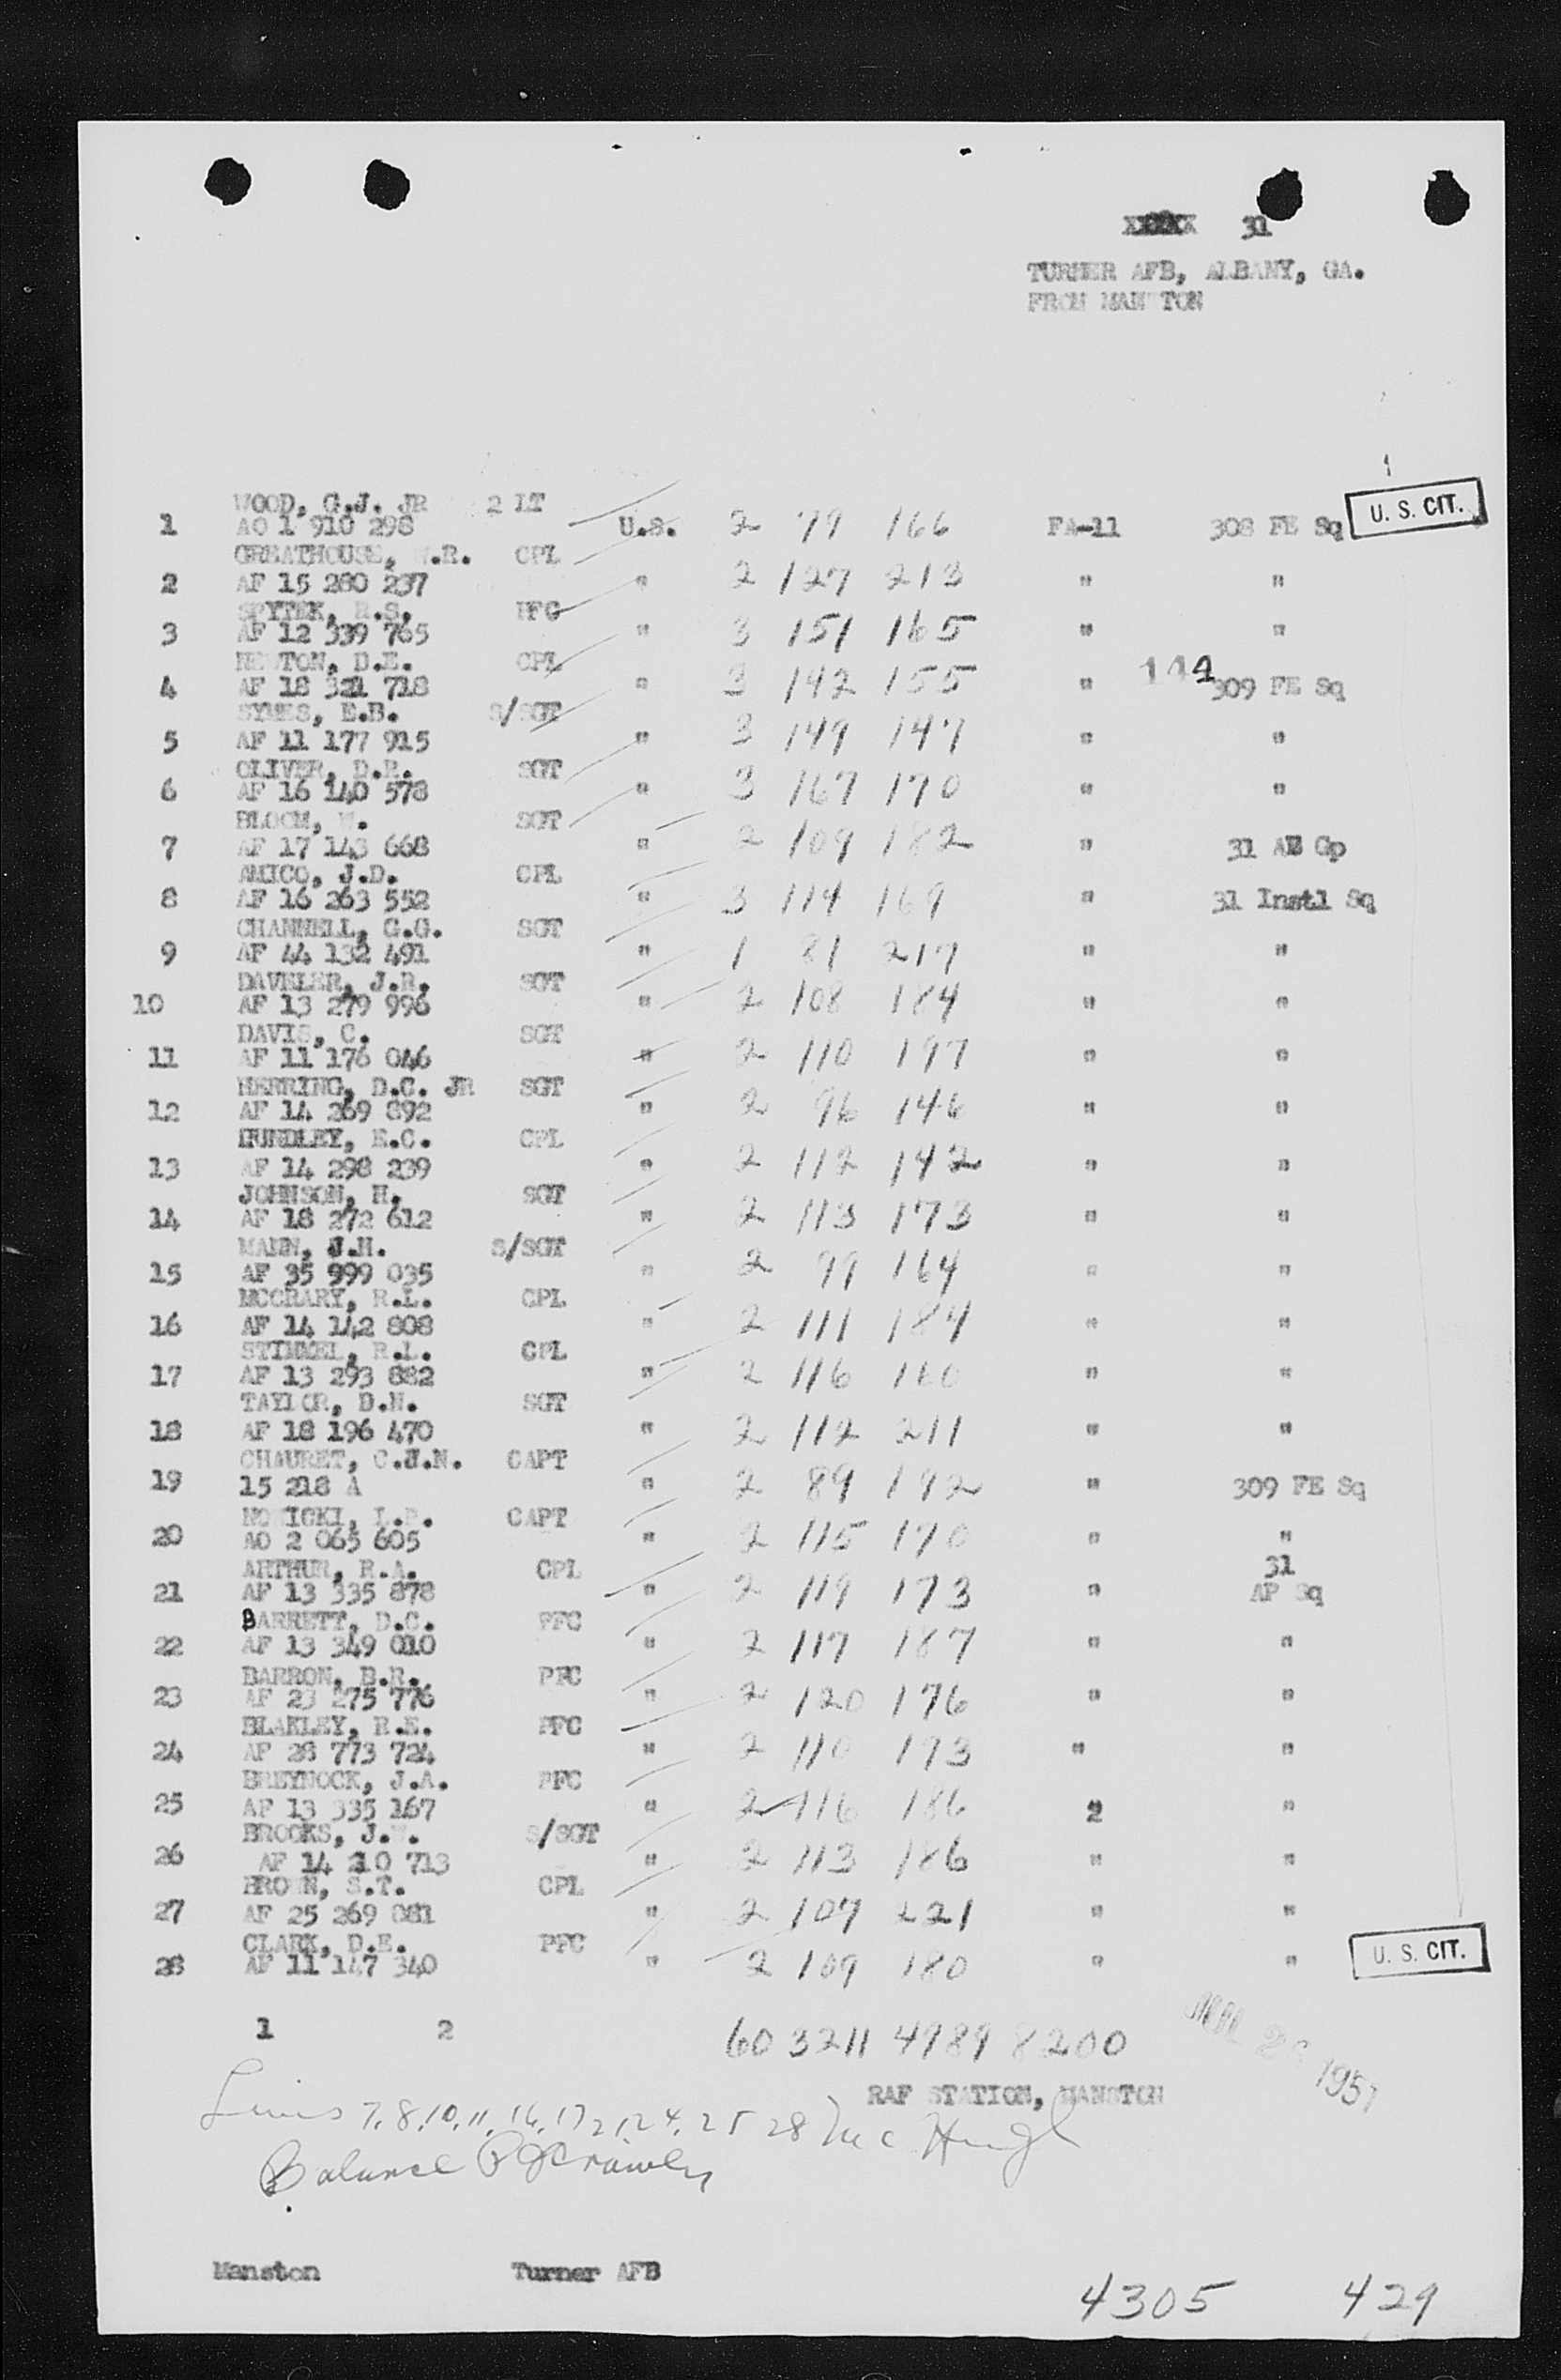 31
TURNER AFB, ALBANY, GA.
FROM MANSTON
WOOD, G.J. JR 2 LT
1 AO 1 910 298 U.S. 2 79 166 FA-11 308 FE Sq U. S. CIT.
GREATHOUSE, .R. CPL
2 AF 15 280 237 " 2 127 213 " "
SPYTEK, R.S. PFC
3 AF 12 339 765 " 3 151 165 " "
NEWTON, D.E. CPL
4 AF 18 321 718 " 3 142 155 " 144 309 FE Sq
SYMES, E.B. S/SGT
5 AF 11 177 915 " 3 149 147 " "
OLIVER, D.R. SGT
6 AF 16 140 578 " 3 167 170 " "
BLOOM, W. SGT
7 AF 17 143 668 " 2 109 182 " 31 AB Gp
AMICO, J.D. CPL
8 AF 16 263 552 " 3 114 169 " 31 Instl Sq
CHANNELL, G.G. SGT
9 AF 44 132 491 " 1 81 217 " "
DAVELER, J.R. SGT
10 AF 13 279 996 " 2 108 184 " "
DAVIS, C. SGT
11 AF 11 176 046 " 2 110 197 " "
HERRING, D.C. JR SGT
12 AF 14 269 892 " 2 96 146 " "
HUNDLEY, E.C. CPL
13 AF 14 298 239 " 2 112 142 " "
JOHNSON, H. SGT
14 AF 18 272 612 " 2 113 173 " "
MANN, J.H. S/SGT
15 AF 35 999 035 " 2 99 164 " "
MCCRARY, R.L. CPL
16 AF 14 142 808 " 2 111 184 " "
STIMMEL, R.L. CPL
17 AF 13 293 882 " 2 116 160 " "
TAYLOR, D.N. SGT
18 AF 18 196 470 " 2 112 211 " "
CHAURET, C.J.N. CAPT
19 15 218 A " 2 89 192 " 309 FE Sq
NOWICKI, L.P. CAPT
20 AO 2 065 605 " 2 115 170 " "
ARTHUR, R.A. CPL 31
21 AF 13 335 878 " 2 119 173 " AP Sq
BARRETT, D.C. PFC
22 AF 13 349 010 " 2 117 187 " "
BARRON, B.R. PFC
23 AF 23 275 776 " 2 120 176 " "
BLAKLEY, R.E. PFC
24 AF 28 773 724 " 2 110 173 " "
BREYNOCK, J.A. PFC
25 AF 13 335 167 " 2 116 186 2 "
BROOKS, J.W. S/SGT
26 AF 14 210 713 " 2 113 186 " "
BROWN, S.T. CPL
27 AF 25 269 081 " 2 107 221 " "
CLARK, D.E. PFC
28 AF 11 147 340 " 2 109 180 " " U. S. CIT.
1 2 60 3211 4989 8200 1951
RAF STATION, MANSTON
Lines 7, 8, 10, 11, 16, 17 21 24, 25 28 Mc Hugh
Balance
Manston Turner AFB
4305 429